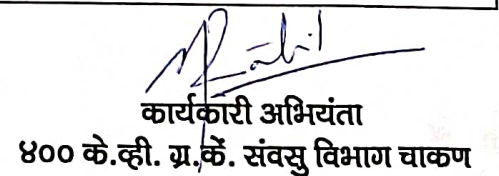 कार्यकारी अभियंता
४०० के.व्ही. ग्र.कें. संवसु विभाग चाकण